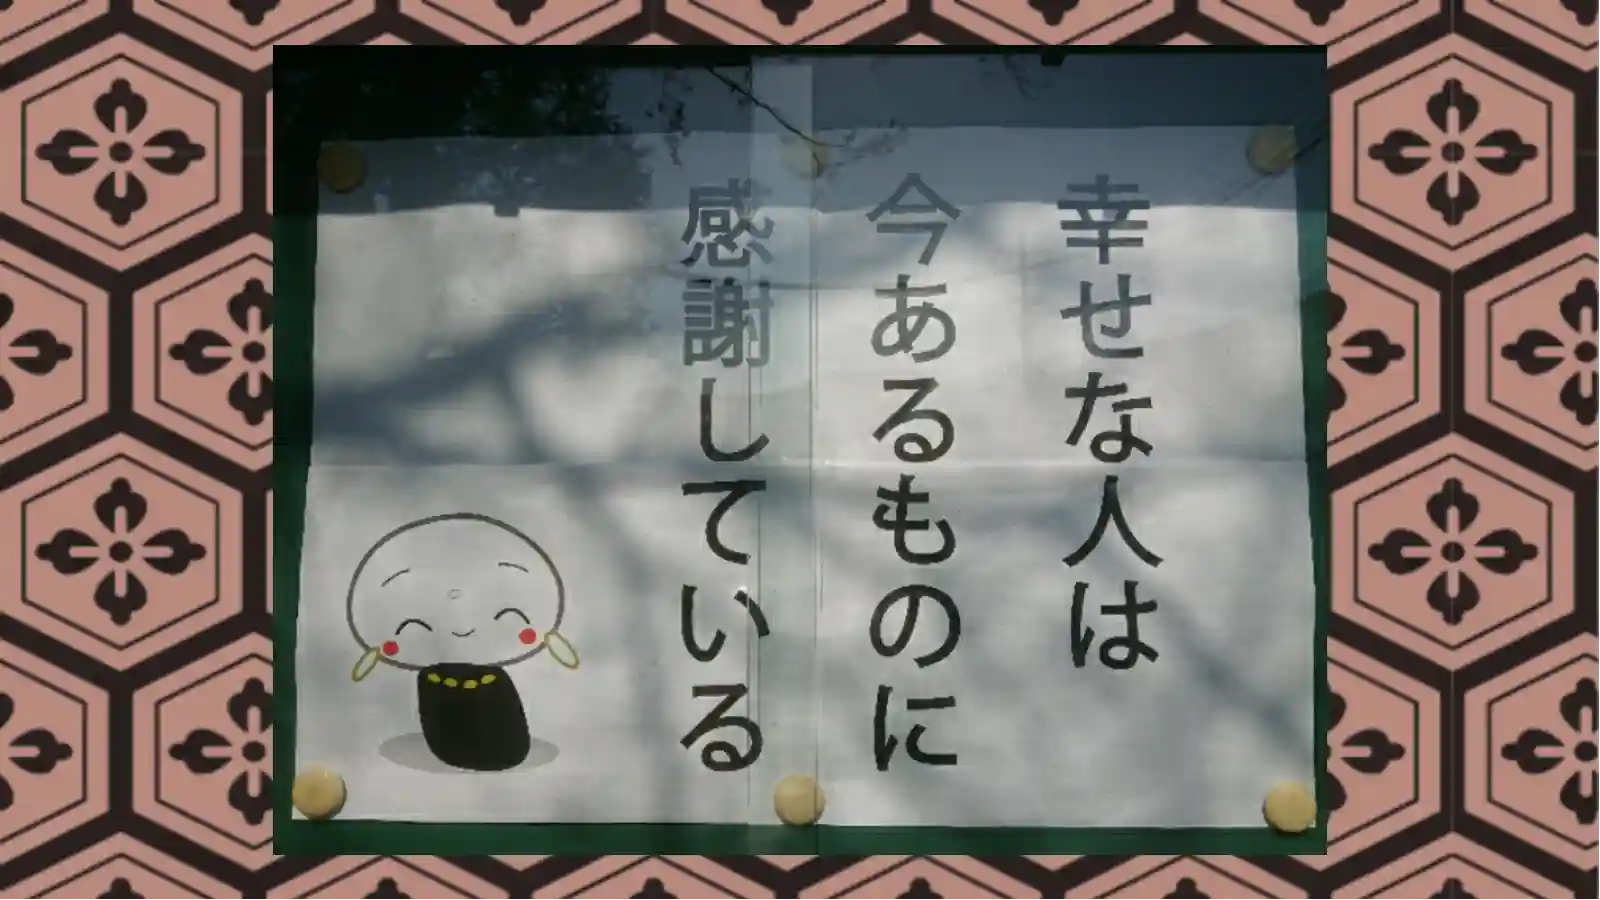 幸せな人は
今あるものに
感謝している